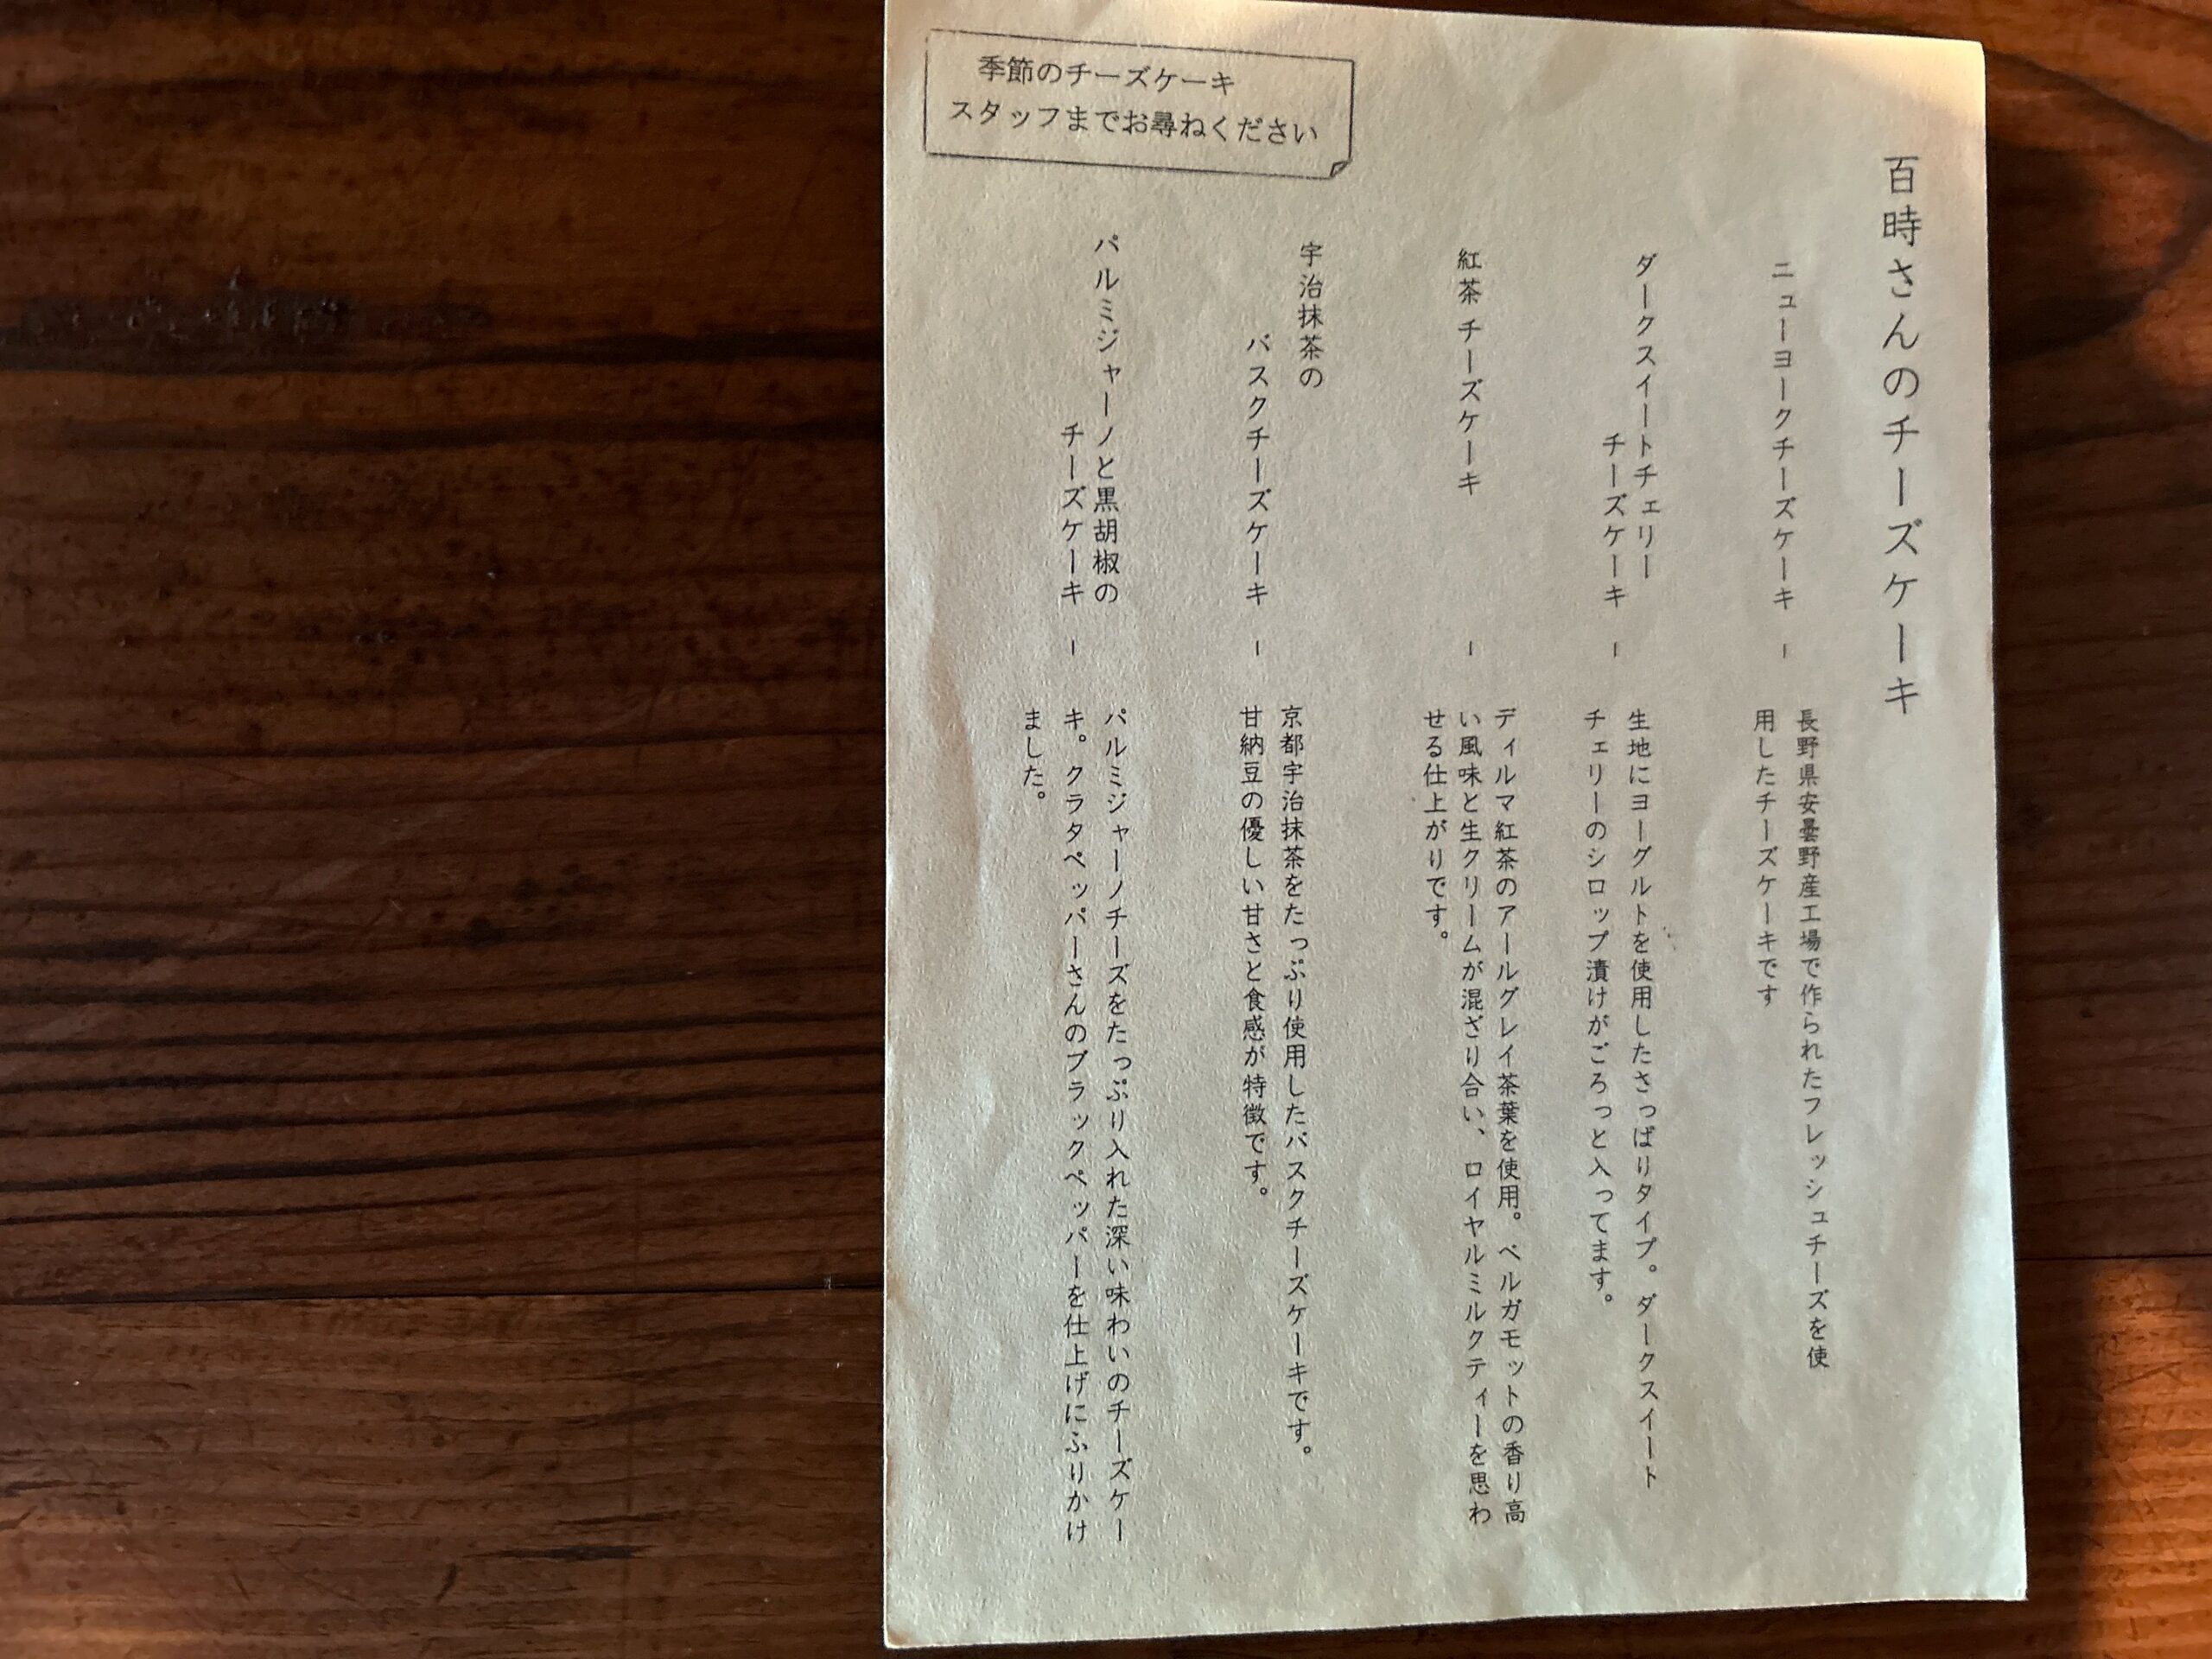 百時さんのチーズケーキ
ニューヨークチーズケーキ ー
長野県安曇野産工場で作られたフレッシュチーズを使
用したチーズケーキです
ダークスイートチェリー
チーズケーキ ー
生地にヨーグルトを使用したさっぱりタイプ。ダークスイート
チェリーのシロップ漬けがごろっと入ってます。
紅茶チーズケーキ ー
ディルマ紅茶のアールグレイ茶葉を使用。ベルガモットの香り高
い風味と生クリームが混ざり合い、ロイヤルミルクティーを思わ
せる仕上がりです。
宇治抹茶の
バスクチーズケーキ ー
京都宇治抹茶をたっぷり使用したバスクチーズケーキです。
甘納豆の優しい甘さと食感が特徴です。
パルミジャーノと黒胡椒の
チーズケーキ ー
パルミジャーノチーズをたっぷり入れた深い味わいのチーズケー
キ。クラタペッパーさんのブラックペッパーを仕上げにふりかけ
ました。
季節のチーズケーキ
スタッフまでお尋ねください